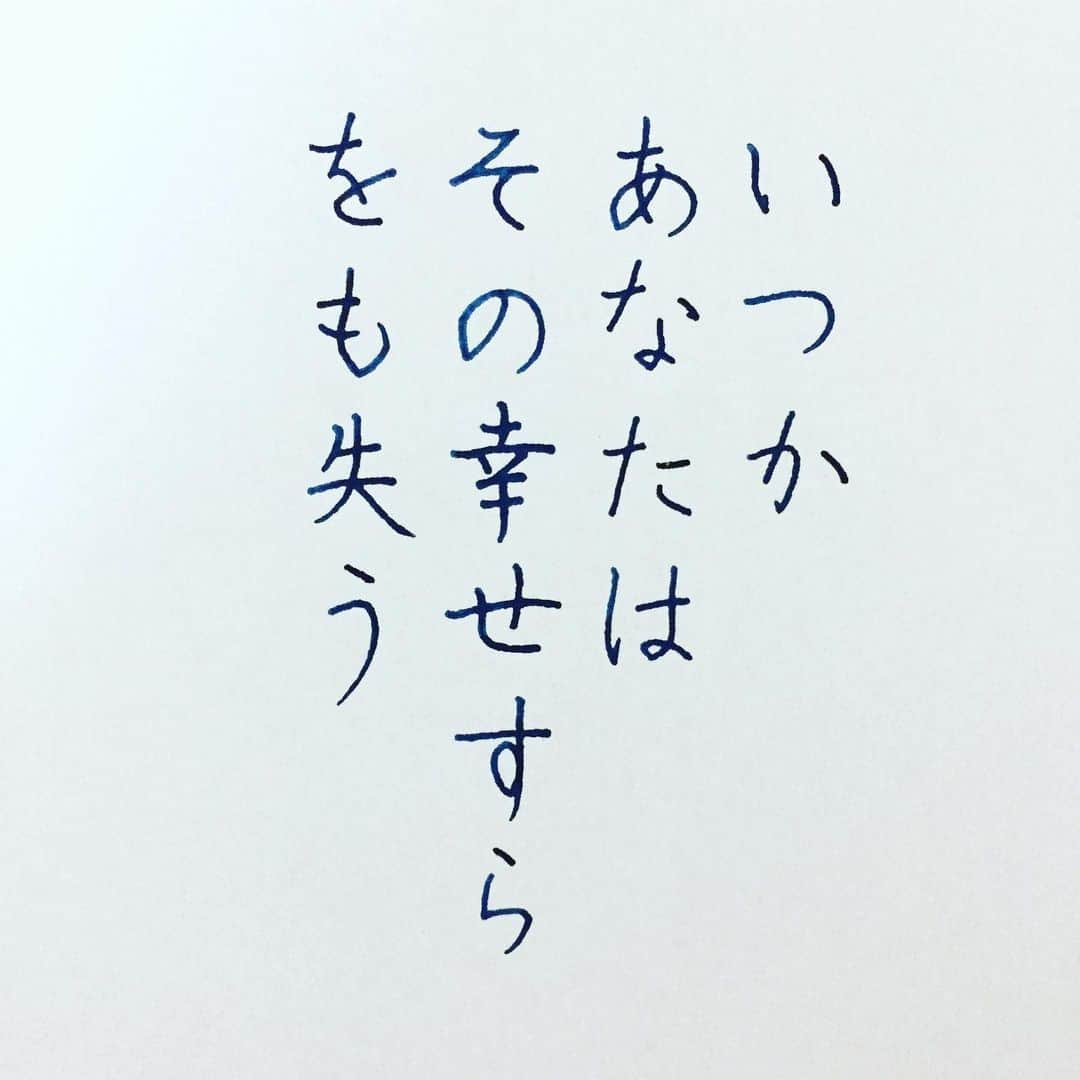 いつか
あなたは
その幸せすら
をも失う